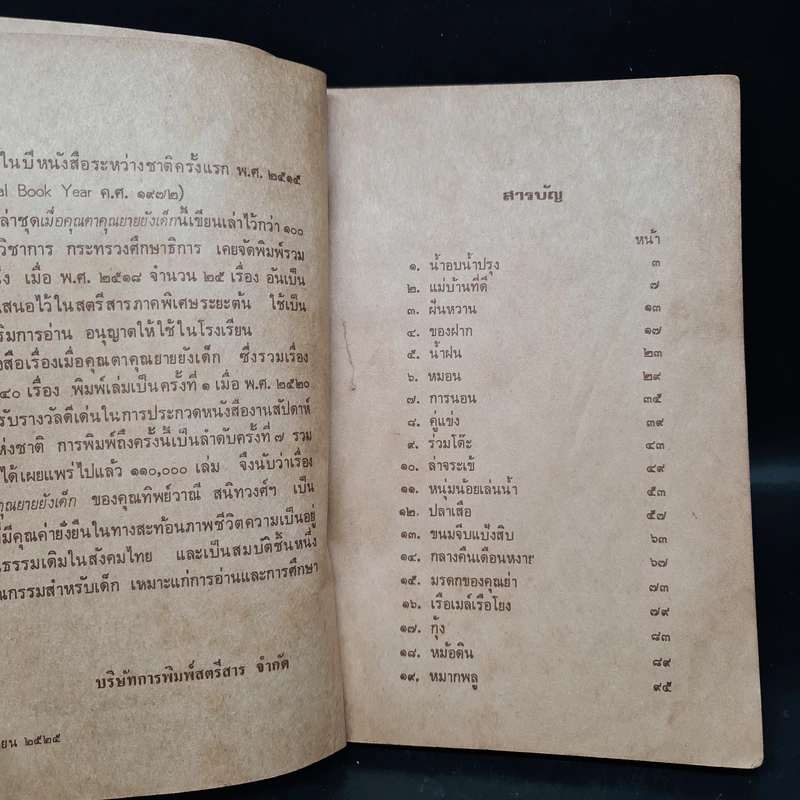 ในปีหนังสือระหว่างชาติครั้งแรก พ.ศ. ๒๕๑๕
al Book Year ค.ศ. ๑๙๗๒)
ล่าชุดเมื่อคุณตาคุณยายยังเด็กนี้เขียนเล่าไว้กว่า ๑๐๐
วิชาการ กระทรวงศึกษาธิการ เคยจัดพิมพ์รวม
เมื่อ พ.ศ. ๒๕๑๘ จำนวน ๒๕ เรื่อง อันเป็น
เสนอไว้ในสตรีสารภาคพิเศษระยะต้น ใช้เป็น
ริมการอ่าน อนุญาตให้ใช้ในโรงเรียน
สือเรื่องเมื่อคุณตาคุณยายยังเด็ก ซึ่งรวมเรื่อง
๔๐ เรื่อง พิมพ์เล่มเป็นครั้งที่ ๑ เมื่อ พ.ศ. ๒๕๒๐
รับรางวัลดีเด่นในการประกวดหนังสืองานสัปดาห์
ห่งชาติ การพิมพ์ถึงครั้งนี้เป็นลำดับครั้งที่ ๗ รวม
ได้เผยแพร่ไปแล้ว ๑๑๐,๐๐๐ เล่ม จึงนับว่าเรื่อง
คุณยายยังเด็ก ของคุณทิพย์วาณี สนิทวงศ์ฯ เป็น
ที่มีคุณค่ายั่งยืนในทางสะท้อนภาพชีวิตความเป็นอยู่
นธรรมเดิมในสังคมไทย และเป็นสมบัติชิ้นหนึ่ง
ณกรรมสำหรับเด็ก เหมาะแก่การอ่านและการศึกษา
บริษัทการพิมพ์สตรีสาร จำกัด
ยน ๒๕๒๕
สารบัญ
หน้า
๑. น้ำอบน้ำปรุง ๓
๒. แม่บ้านที่ดี ๗
๓. ฝันหวาน ๑๓
๔. ของฝาก ๑๗
๕. น้ำฝน ๒๓
๖. หมอน ๒๙
๗. การนอน ๓๕
๘. คู่แข่ง ๓๙
๙. ร่วมโต๊ะ ๔๓
๑๐. ล่าจระเข้ ๔๙
๑๑. หนุ่มน้อยเล่นน้ำ ๕๓
๑๒. ปลาเสือ ๕๗
๑๓. ขนมจีบแป้งสิบ ๖๓
๑๔. กลางคืนเดือนหงาย ๖๗
๑๕. มรดกของคุณย่า ๗๓
๑๖. เรือเมล์เรือโยง ๗๙
๑๗. กุ้ง ๘๓
๑๘. หม้อดิน ๘๙
๑๙. หมากพลู ๙๕